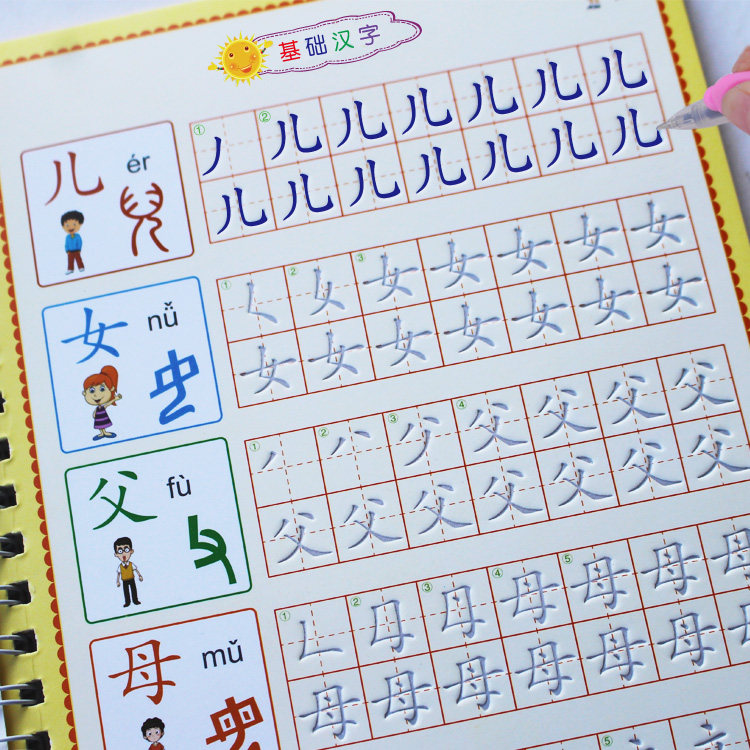 基础汉字
儿 ér
① 丿 ② 儿 儿 儿 儿 儿 儿
儿 儿 儿 儿 儿 儿 儿
女 nǚ
① ② ③ 女 女 女 女 女
女 女 女 女 女 女 女
父 fù
① ② ③ ④ 父 父 父 父
父 父 父 父 父 父 父
母 mǔ
① ② ③ ④ ⑤ 母 母 母
母 母 母 母 母 母 母
⑤